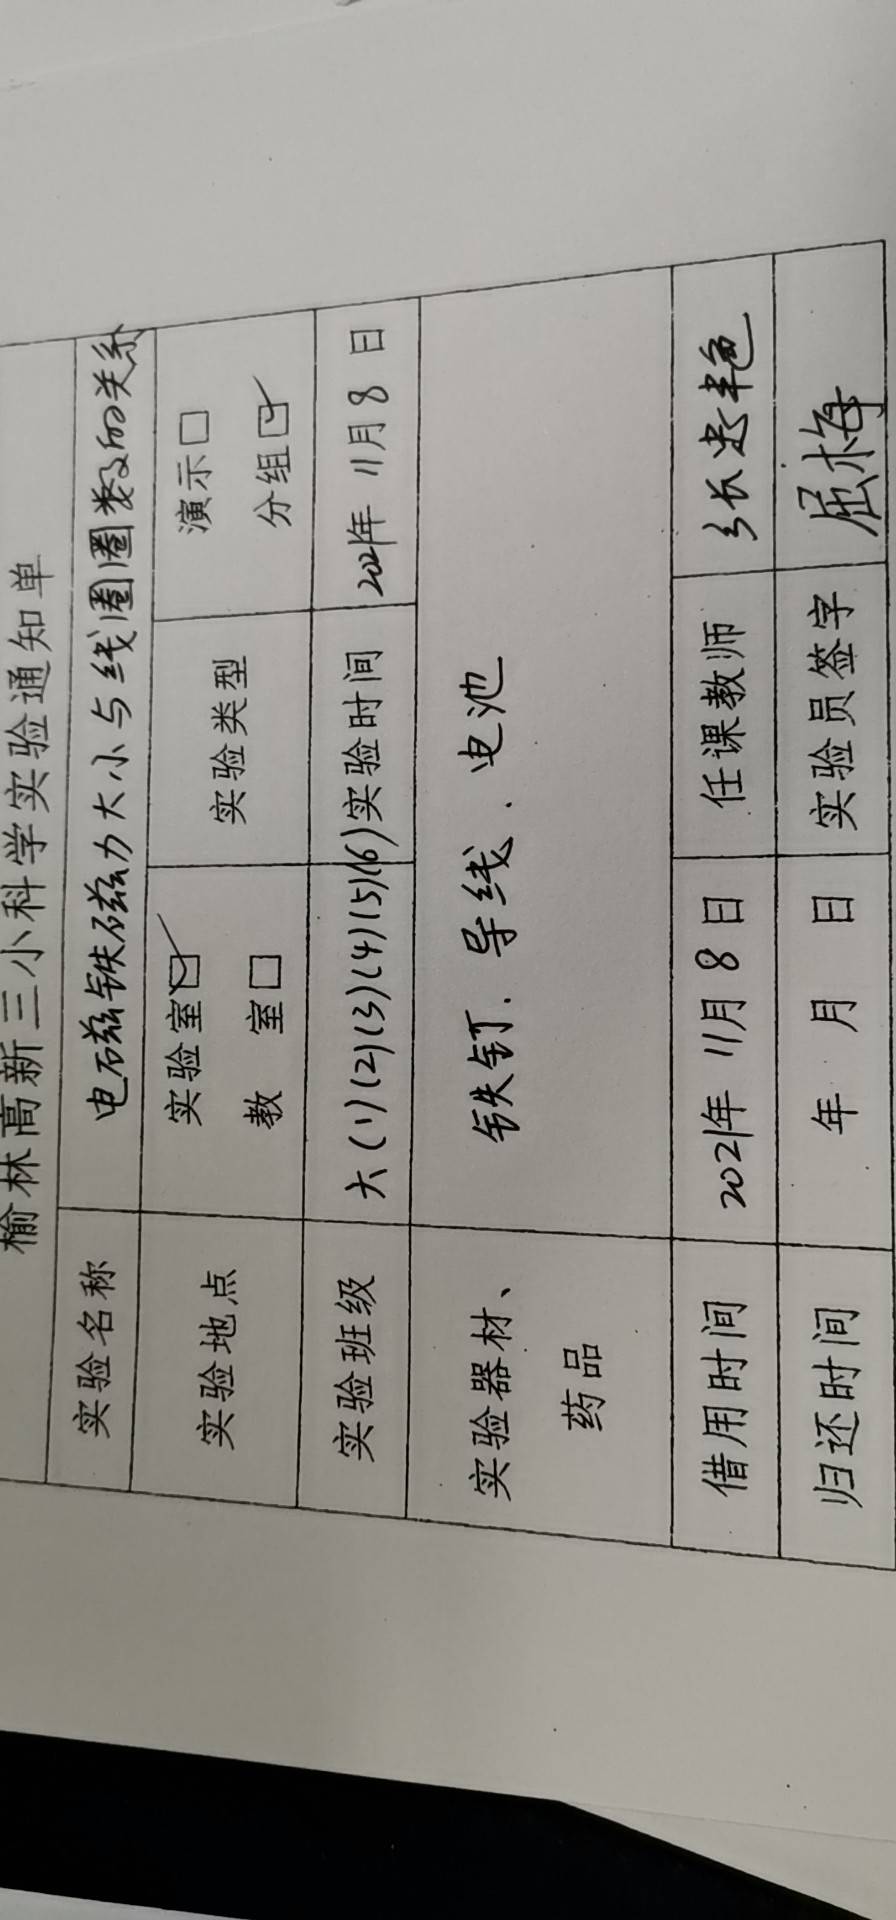 榆林高新三小科学实验通知单
实验名称 电石兹铁石兹力大小与线圈圈数的关系
实验地点 实验室☑ 教 室□ 实验类型 演示□ 分组☑
实验班级 六(1)(2)(3)(4)(5)(6) 实验时间 2021年 11月 8 日
实验器材、药品 铁钉、导线、电池
借用时间 2021年 11月 8 日 任课教师 张
归还时间 年 月 日 实验员签字 屈梅